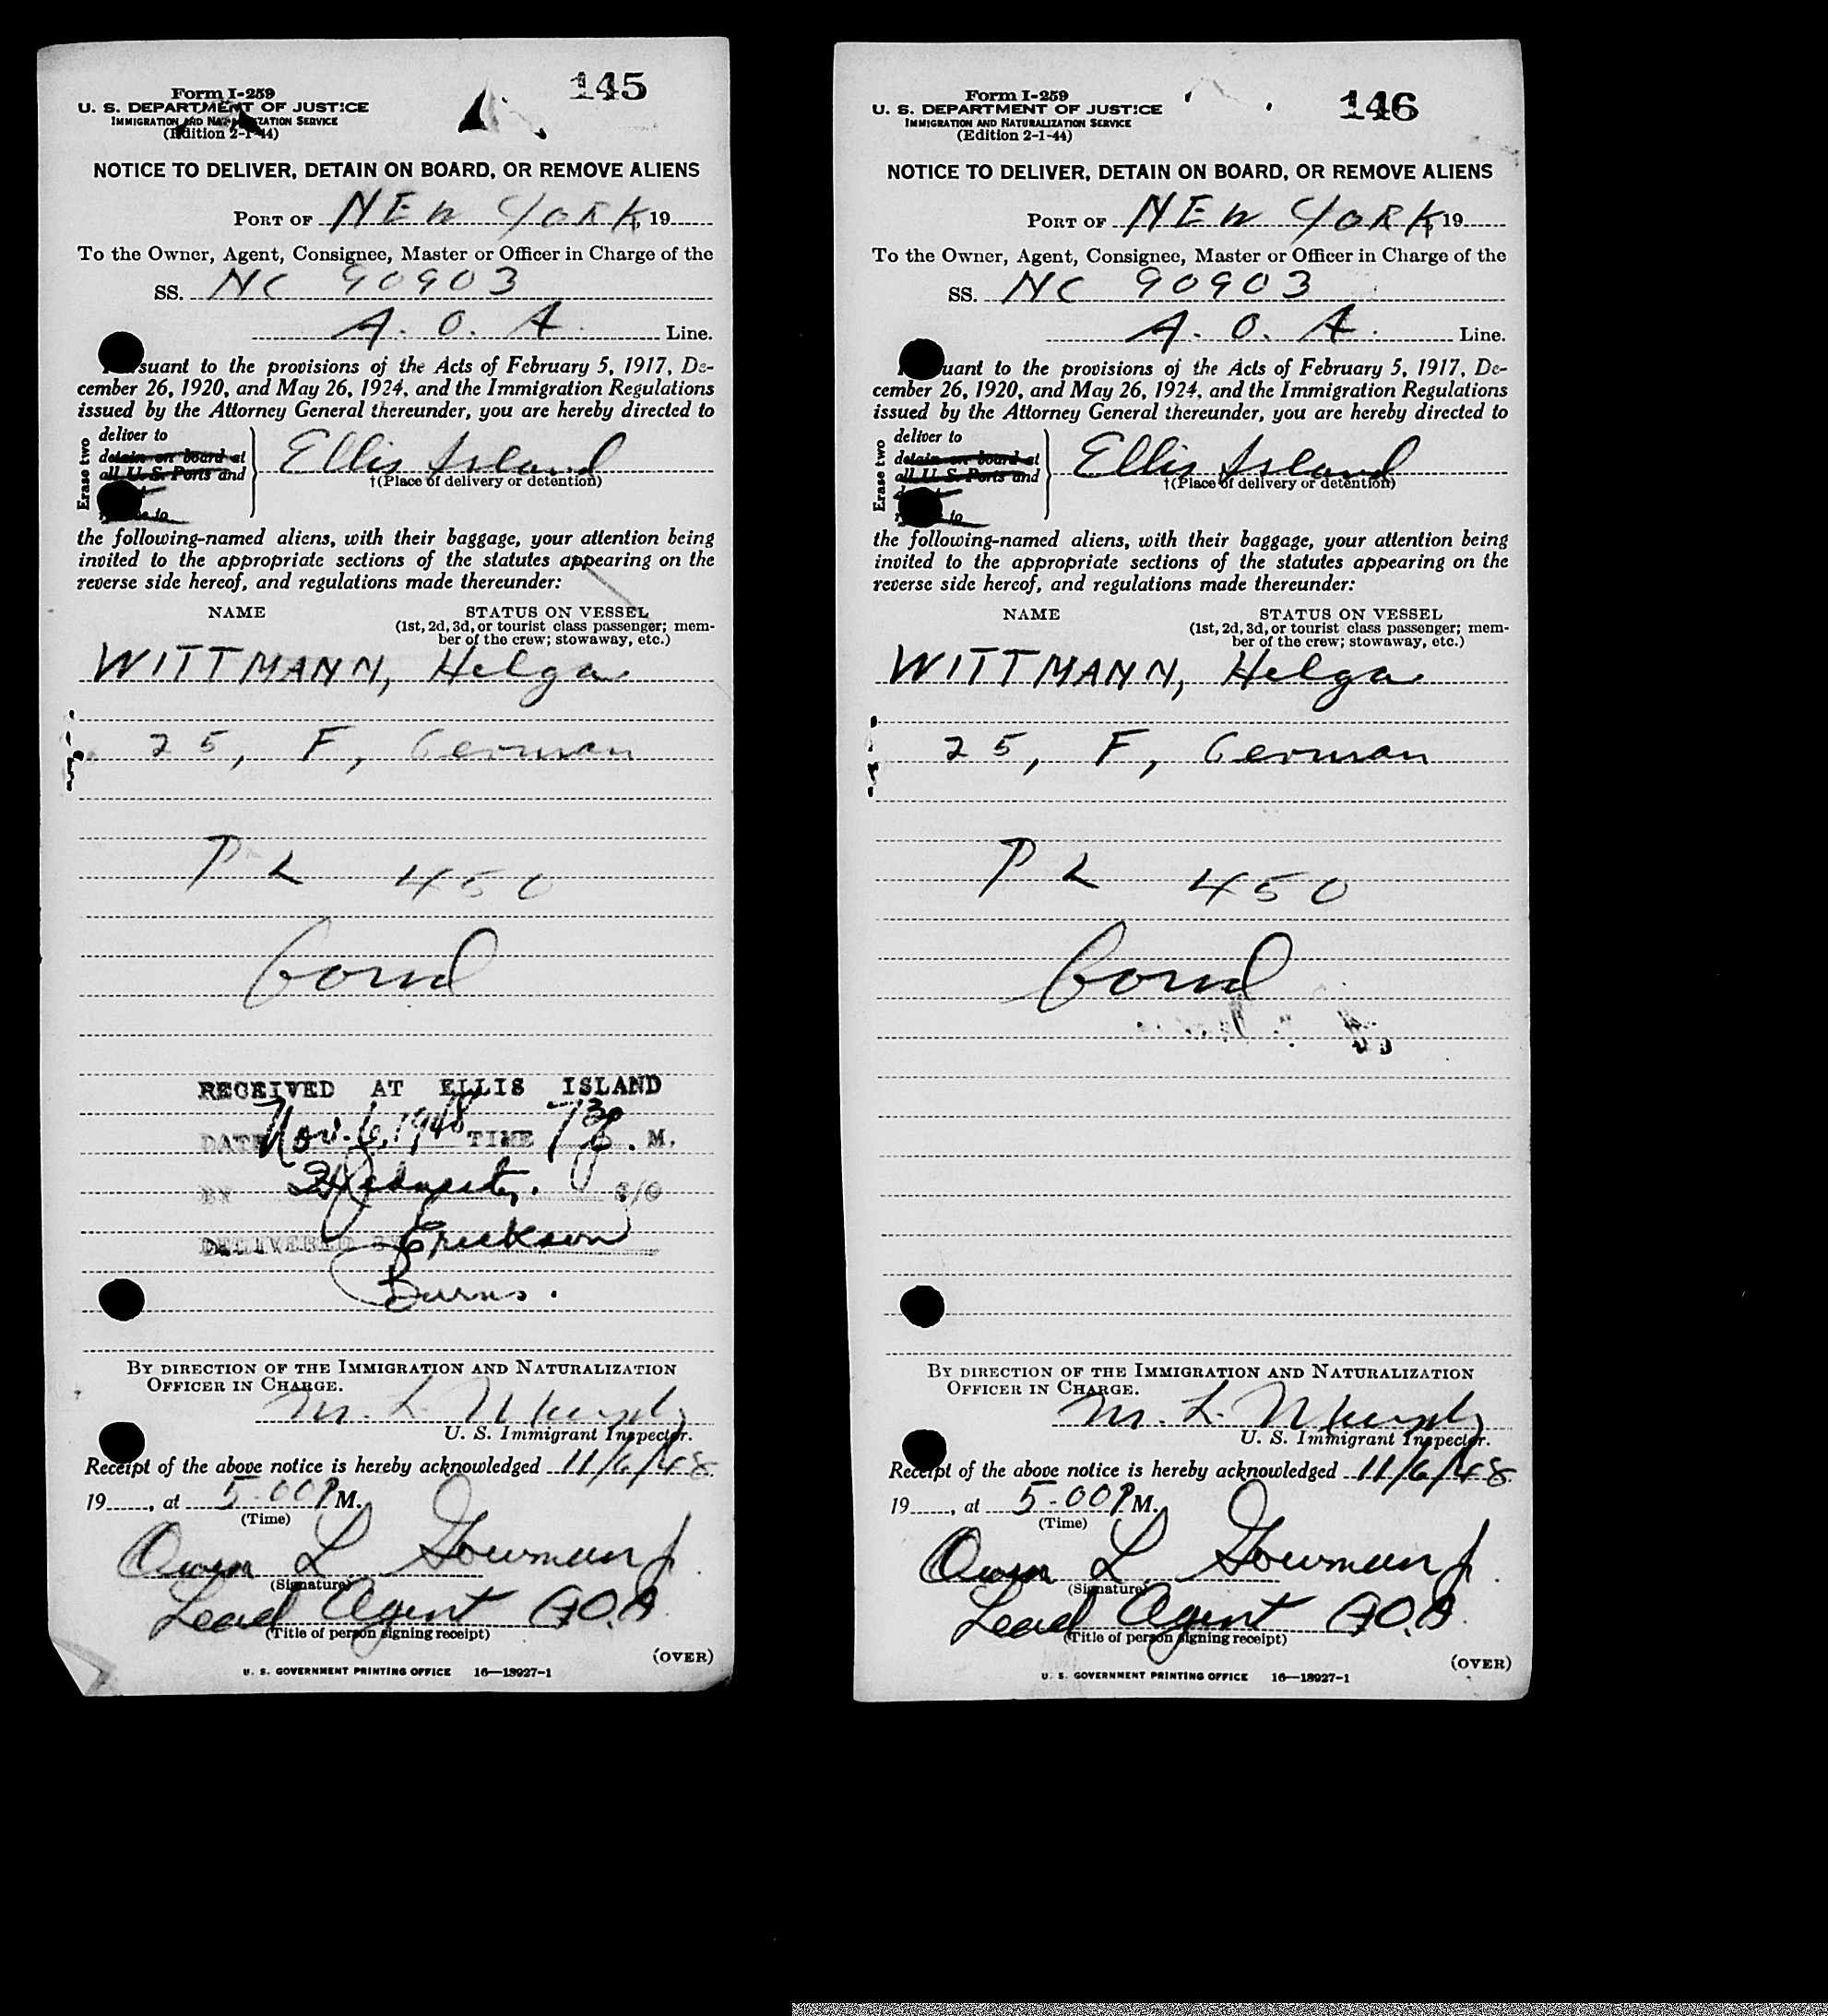 145
Form I-259
U. S. DEPARTMENT OF JUSTICE
IMMIGRATION AND NATURALIZATION SERVICE
(Edition 2-1-44)
NOTICE TO DELIVER, DETAIN ON BOARD, OR REMOVE ALIENS
PORT OF NEW YORK, 19
To the Owner, Agent, Consignee, Master or Officer in Charge of the
SS. NC 90903
A. O. A. Line.
suant to the provisions of the Acts of February 5, 1917, De-
cember 26, 1920, and May 26, 1924, and the Immigration Regulations
issued by the Attorney General thereunder, you are hereby directed to
Erase two
deliver to
detain on board at
all U. S. Ports and
to
Ellis Island
†(Place of delivery or detention)
the following-named aliens, with their baggage, your attention being
invited to the appropriate sections of the statutes appearing on the
reverse side hereof, and regulations made thereunder:
NAME STATUS ON VESSEL
(1st, 2d, 3d, or tourist class passenger; mem-
ber of the crew; stowaway, etc.)
WITTMANN, Helga
25, F, German
PL 450
bond
RECEIVED AT ELLIS ISLAND
DATE Nov. 6, 1948 TIME 7 30 P. M.
BY S/O
DELIVERED BY Erickson
Burns.
BY DIRECTION OF THE IMMIGRATION AND NATURALIZATION
OFFICER IN CHARGE.
M. L. Murphy
U. S. Immigrant Inspector.
Receipt of the above notice is hereby acknowledged 11/6/48
19, at 5-00 P M.
(Time)
Owen L.
(Signature)
Lead Agent A.O.A.
(Title of person signing receipt)
(OVER)
U. S. GOVERNMENT PRINTING OFFICE 16—18927-1
146
Form I-259
U. S. DEPARTMENT OF JUSTICE
IMMIGRATION AND NATURALIZATION SERVICE
(Edition 2-1-44)
NOTICE TO DELIVER, DETAIN ON BOARD, OR REMOVE ALIENS
PORT OF NEW YORK, 19
To the Owner, Agent, Consignee, Master or Officer in Charge of the
SS. NC 90903
A. O. A. Line.
uant to the provisions of the Acts of February 5, 1917, De-
cember 26, 1920, and May 26, 1924, and the Immigration Regulations
issued by the Attorney General thereunder, you are hereby directed to
Erase two
deliver to
detain on board at
all U. S. Ports and
to
Ellis Island
†(Place of delivery or detention)
the following-named aliens, with their baggage, your attention being
invited to the appropriate sections of the statutes appearing on the
reverse side hereof, and regulations made thereunder:
NAME STATUS ON VESSEL
(1st, 2d, 3d, or tourist class passenger; mem-
ber of the crew; stowaway, etc.)
WITTMANN, Helga
25, F, German
PL 450
bond
BY DIRECTION OF THE IMMIGRATION AND NATURALIZATION
OFFICER IN CHARGE.
M. L. Murphy
U. S. Immigrant Inspector.
Receipt of the above notice is hereby acknowledged 11/6/48
19, at 5-00 P M.
(Time)
Owen L.
(Signature)
Lead Agent A.O.A.
(Title of person signing receipt)
(OVER)
U. S. GOVERNMENT PRINTING OFFICE 16—18927-1